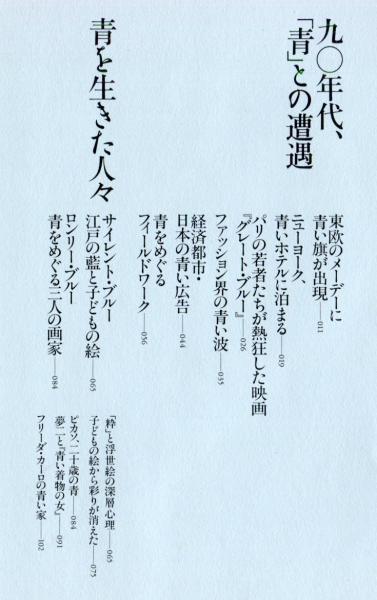 九〇年代、
「青」との遭遇
東欧のメーデーに
青い旗が出現——011
ニューヨーク、
青いホテルに泊まる——019
パリの若者たちが熱狂した映画
『グレート・ブルー』——026
ファッション界の青い波——035
経済都市・
日本の青い広告——044
青をめぐる
フィールドワーク——056
青を生きた人々
サイレント・ブルー
江戸の藍と子どもの絵——065
ロンリー・ブルー
青をめぐる三人の画家——084
「粋」と浮世絵の深層心理——065
子どもの絵から彩りが消えた——075
ピカソ、二十歳の青——084
夢二と『青い着物の女』——091
フリーダ・カーロの青い家——102